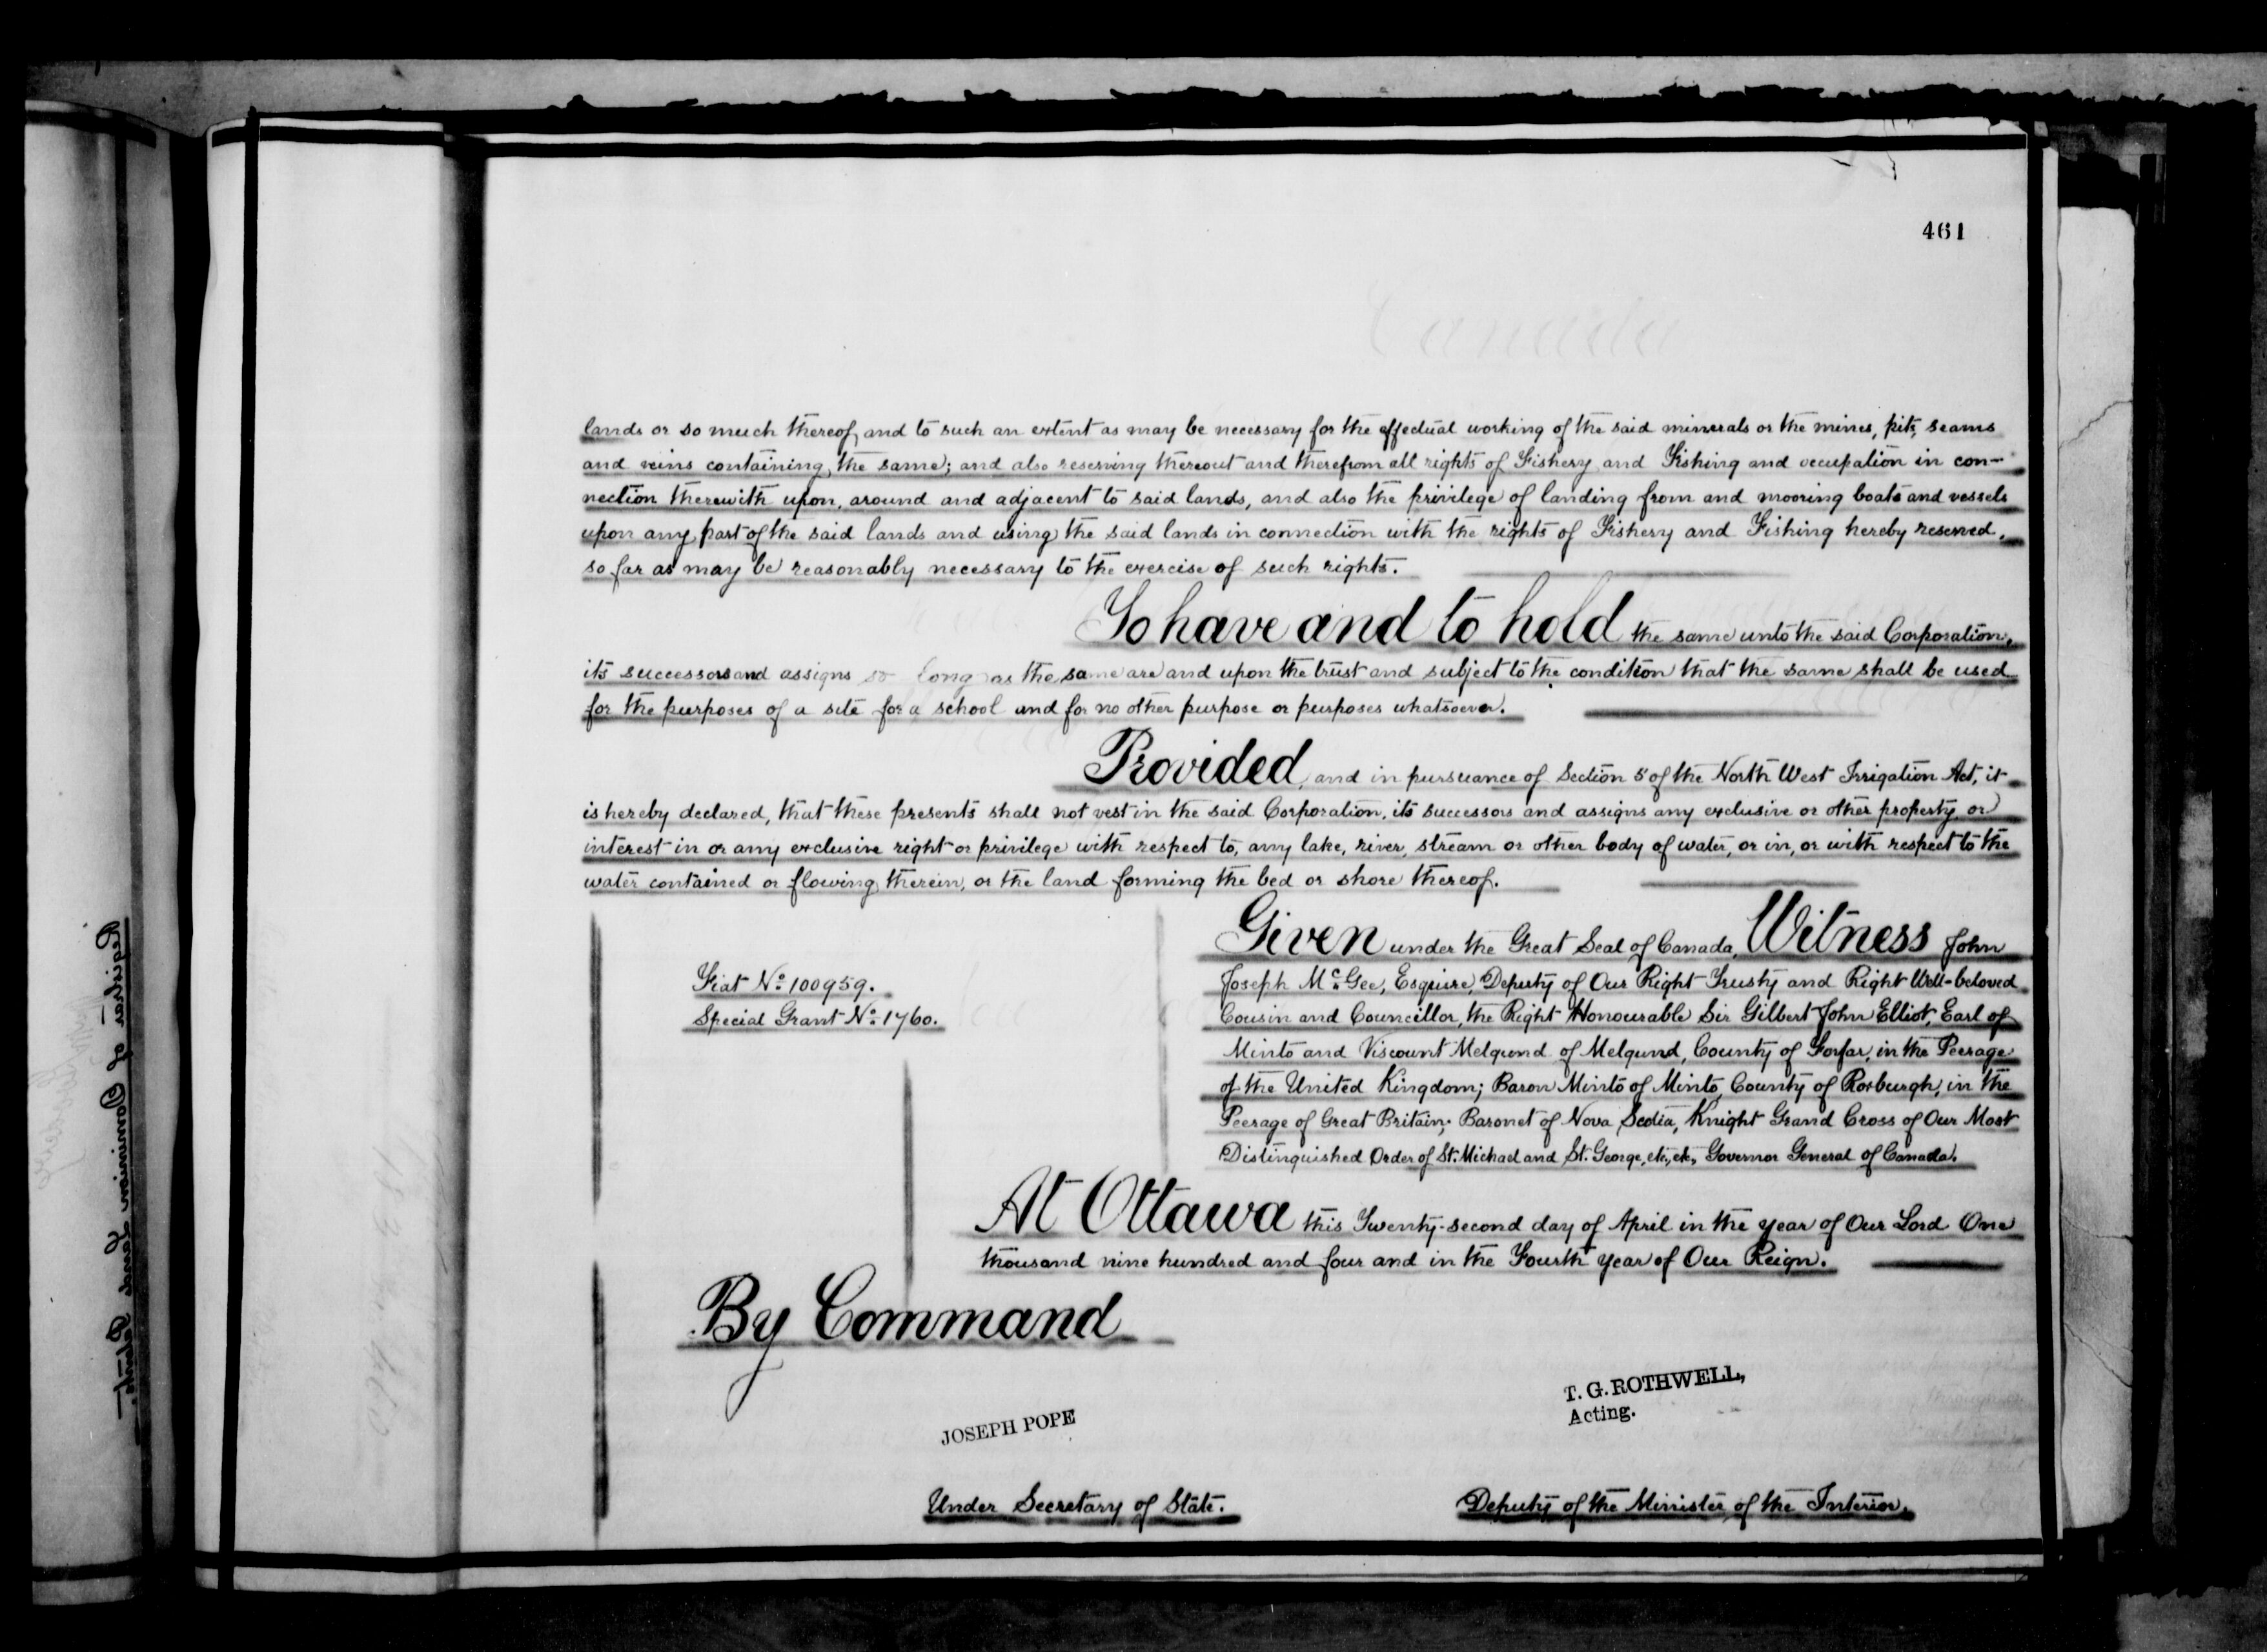 461
lands or so much thereof, and to such an extent as may be necessary for the effectual working of the said minerals or the mines, pits, seams
and veins containing the same; and also reserving thereout and therefrom all rights of Fishery and Fishing and occupation in con-
nection therewith upon, around and adjacent to said lands, and also the privilege of landing from and mooring boats and vessels
upon any part of the said lands and using the said lands in connection with the rights of Fishery and Fishing hereby reserved,
so far as may be reasonably necessary to the exercise of such rights.
To have and to hold the same unto the said Corporation,
its successors and assigns so long as the same are and upon the trust and subject to the condition that the same shall be used
for the purposes of a site for a school and for no other purpose or purposes whatsoever.
Provided, and in pursuance of Section 5 of the North West Irrigation Act, it
is hereby declared, that these presents shall not vest in the said Corporation, its successors and assigns any exclusive or other property or
interest in or any exclusive right or privilege with respect to, any lake, river, stream or other body of water, or in, or with respect to the
water contained or flowing therein, or the land forming the bed or shore thereof.
Fiat No. 100959.
Special Grant No. 1760.
Given under the Great Seal of Canada, Witness John
Joseph McGee, Esquire, Deputy of Our Right Trusty and Right Well-beloved
Cousin and Councillor, the Right Honourable Sir Gilbert John Elliot, Earl of
Minto and Viscount Melgund of Melgund, County of Forfar, in the Peerage
of the United Kingdom; Baron Minto of Minto, County of Roxburgh, in the
Peerage of Great Britain; Baronet of Nova Scotia, Knight Grand Cross of Our Most
Distinguished Order of St. Michael and St. George, etc., etc., Governor General of Canada.
At Ottawa this Twenty-second day of April in the year of Our Lord One
thousand nine hundred and four and in the Fourth year of Our Reign.
By Command
JOSEPH POPE
T. G. ROTHWELL,
Acting.
Under Secretary of State.
Deputy of the Minister of the Interior.
Registrar of Dominion Lands Patents.